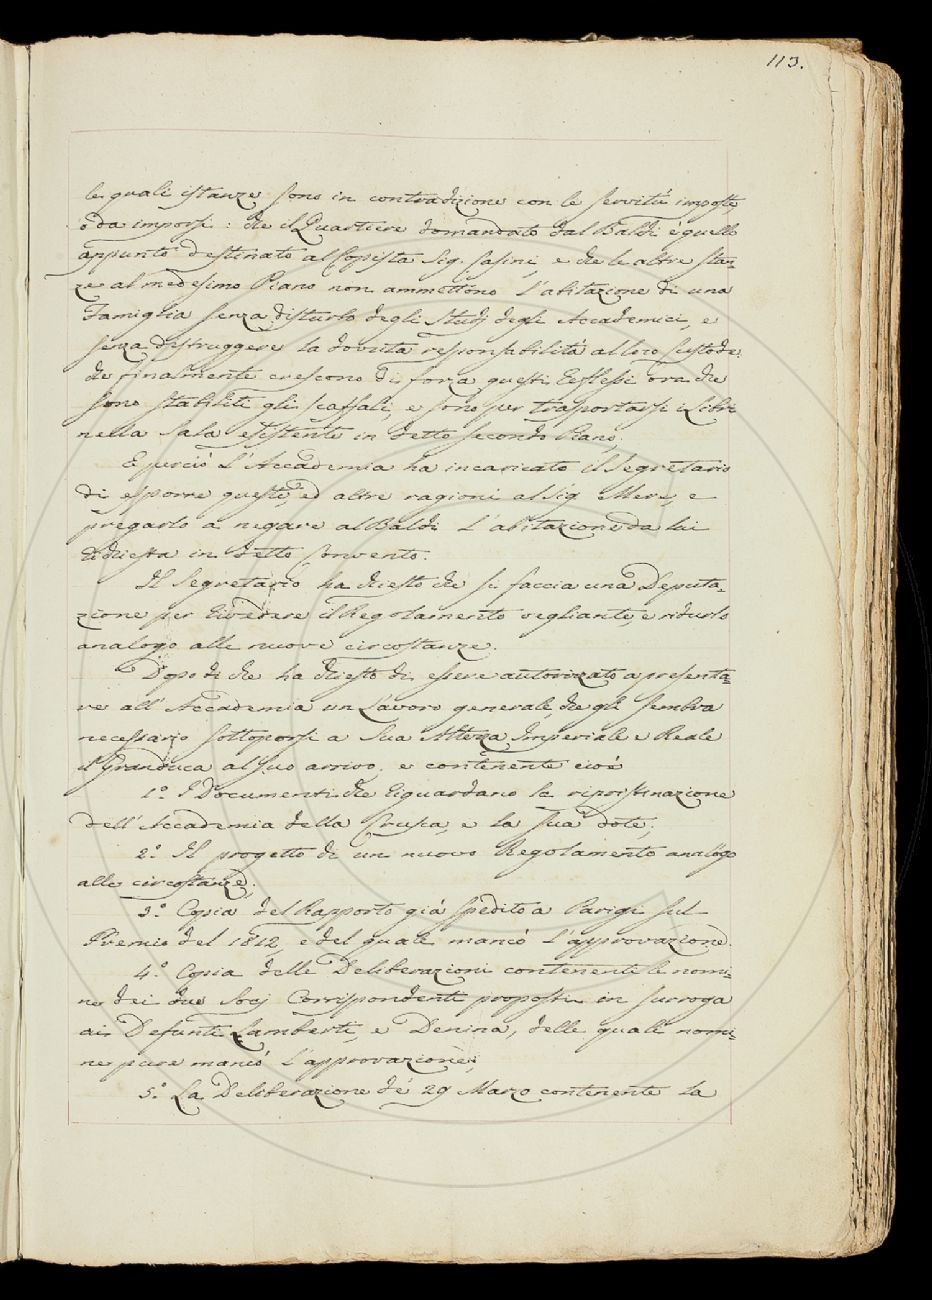 113.
le quali istanze sono in contradizione con le servitù imposte,
o da imporsi: che il Quartiere domandato dal Baldi è quello
appunto destinato al Copista Sig. Casini, e che le altre stan=
ze al medesimo Piano non ammettono l'abitazione di una
Famiglia senza disturbo degli Studj degli Accademici, e
senza distruggere la dovuta responsabilità al loro Custode;
che finalmente crescono di forza questi Reflessi ora che
sono stabiliti gli scaffali, e sono per trasportarsi i Libri
nella Sala esistente in detto secondo Piano.
E perciò l'Accademia ha incaricato il Segretario
di esporre queste, ed altre ragioni al Sig. Mere, e
pregarlo a negare al Baldi l'abitazione da lui
richiesta in detto Convento.
Il Segretario ha chiesto che si faccia una Deputa=
zione per rivedere il Regolamento vegliante, e ridurlo
analogo alle nuove circostanze.
Dopo di che ha chiesto di essere autorizzato a presenta=
re all'Accademia un Lavoro generale, che gli sembra
necessario sottoporsi a Sua Altezza Imperiale e Reale
il Granduca al suo arrivo, e contenente cioè
1.° I Documenti che riguardano la ripristinazione
dell'Accademia della Crusca, e la sua dote;
2.° Il progetto di un nuovo Regolamento analogo
alle circostanze;
3.° Copia del Rapporto già spedito a Parigi sul
Premio del 1812, e del quale mancò l'approvazione.
4.° Copia delle Deliberazioni contenenti le nomi=
ne dei due Socj Corrispondenti proposti in surroga
ai Defunti Lamberti, e Denina, delle quali nomi=
ne pure mancò l'approvazione;
5.° La Deliberazione de' 29 Marzo contenente la